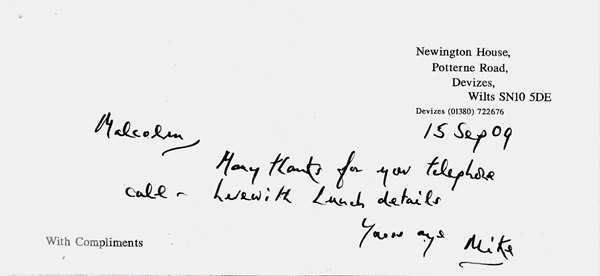 Newington House,
Potterne Road,
Devizes,
Wilts SN10 5DE
Devizes (01380) 722676
15 Sep 09
Malcolm,
Many thanks for your telephone
call - herewith Lunch details
Yours aye Mike
With Compliments